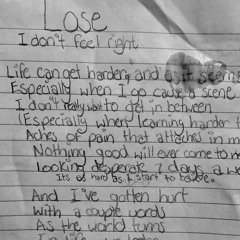 Lose
I don't feel right
Life can get harder, and as it seem
Especially when I go cause a scene
I don't really want to get in between
(Especially when learning harder t
Aches of pain that attaches in m
Nothing good will ever come to m
looking desperate 7 days a w
It's as hard as I start to
And I've gotten hurt
With a couple words
As the world turns